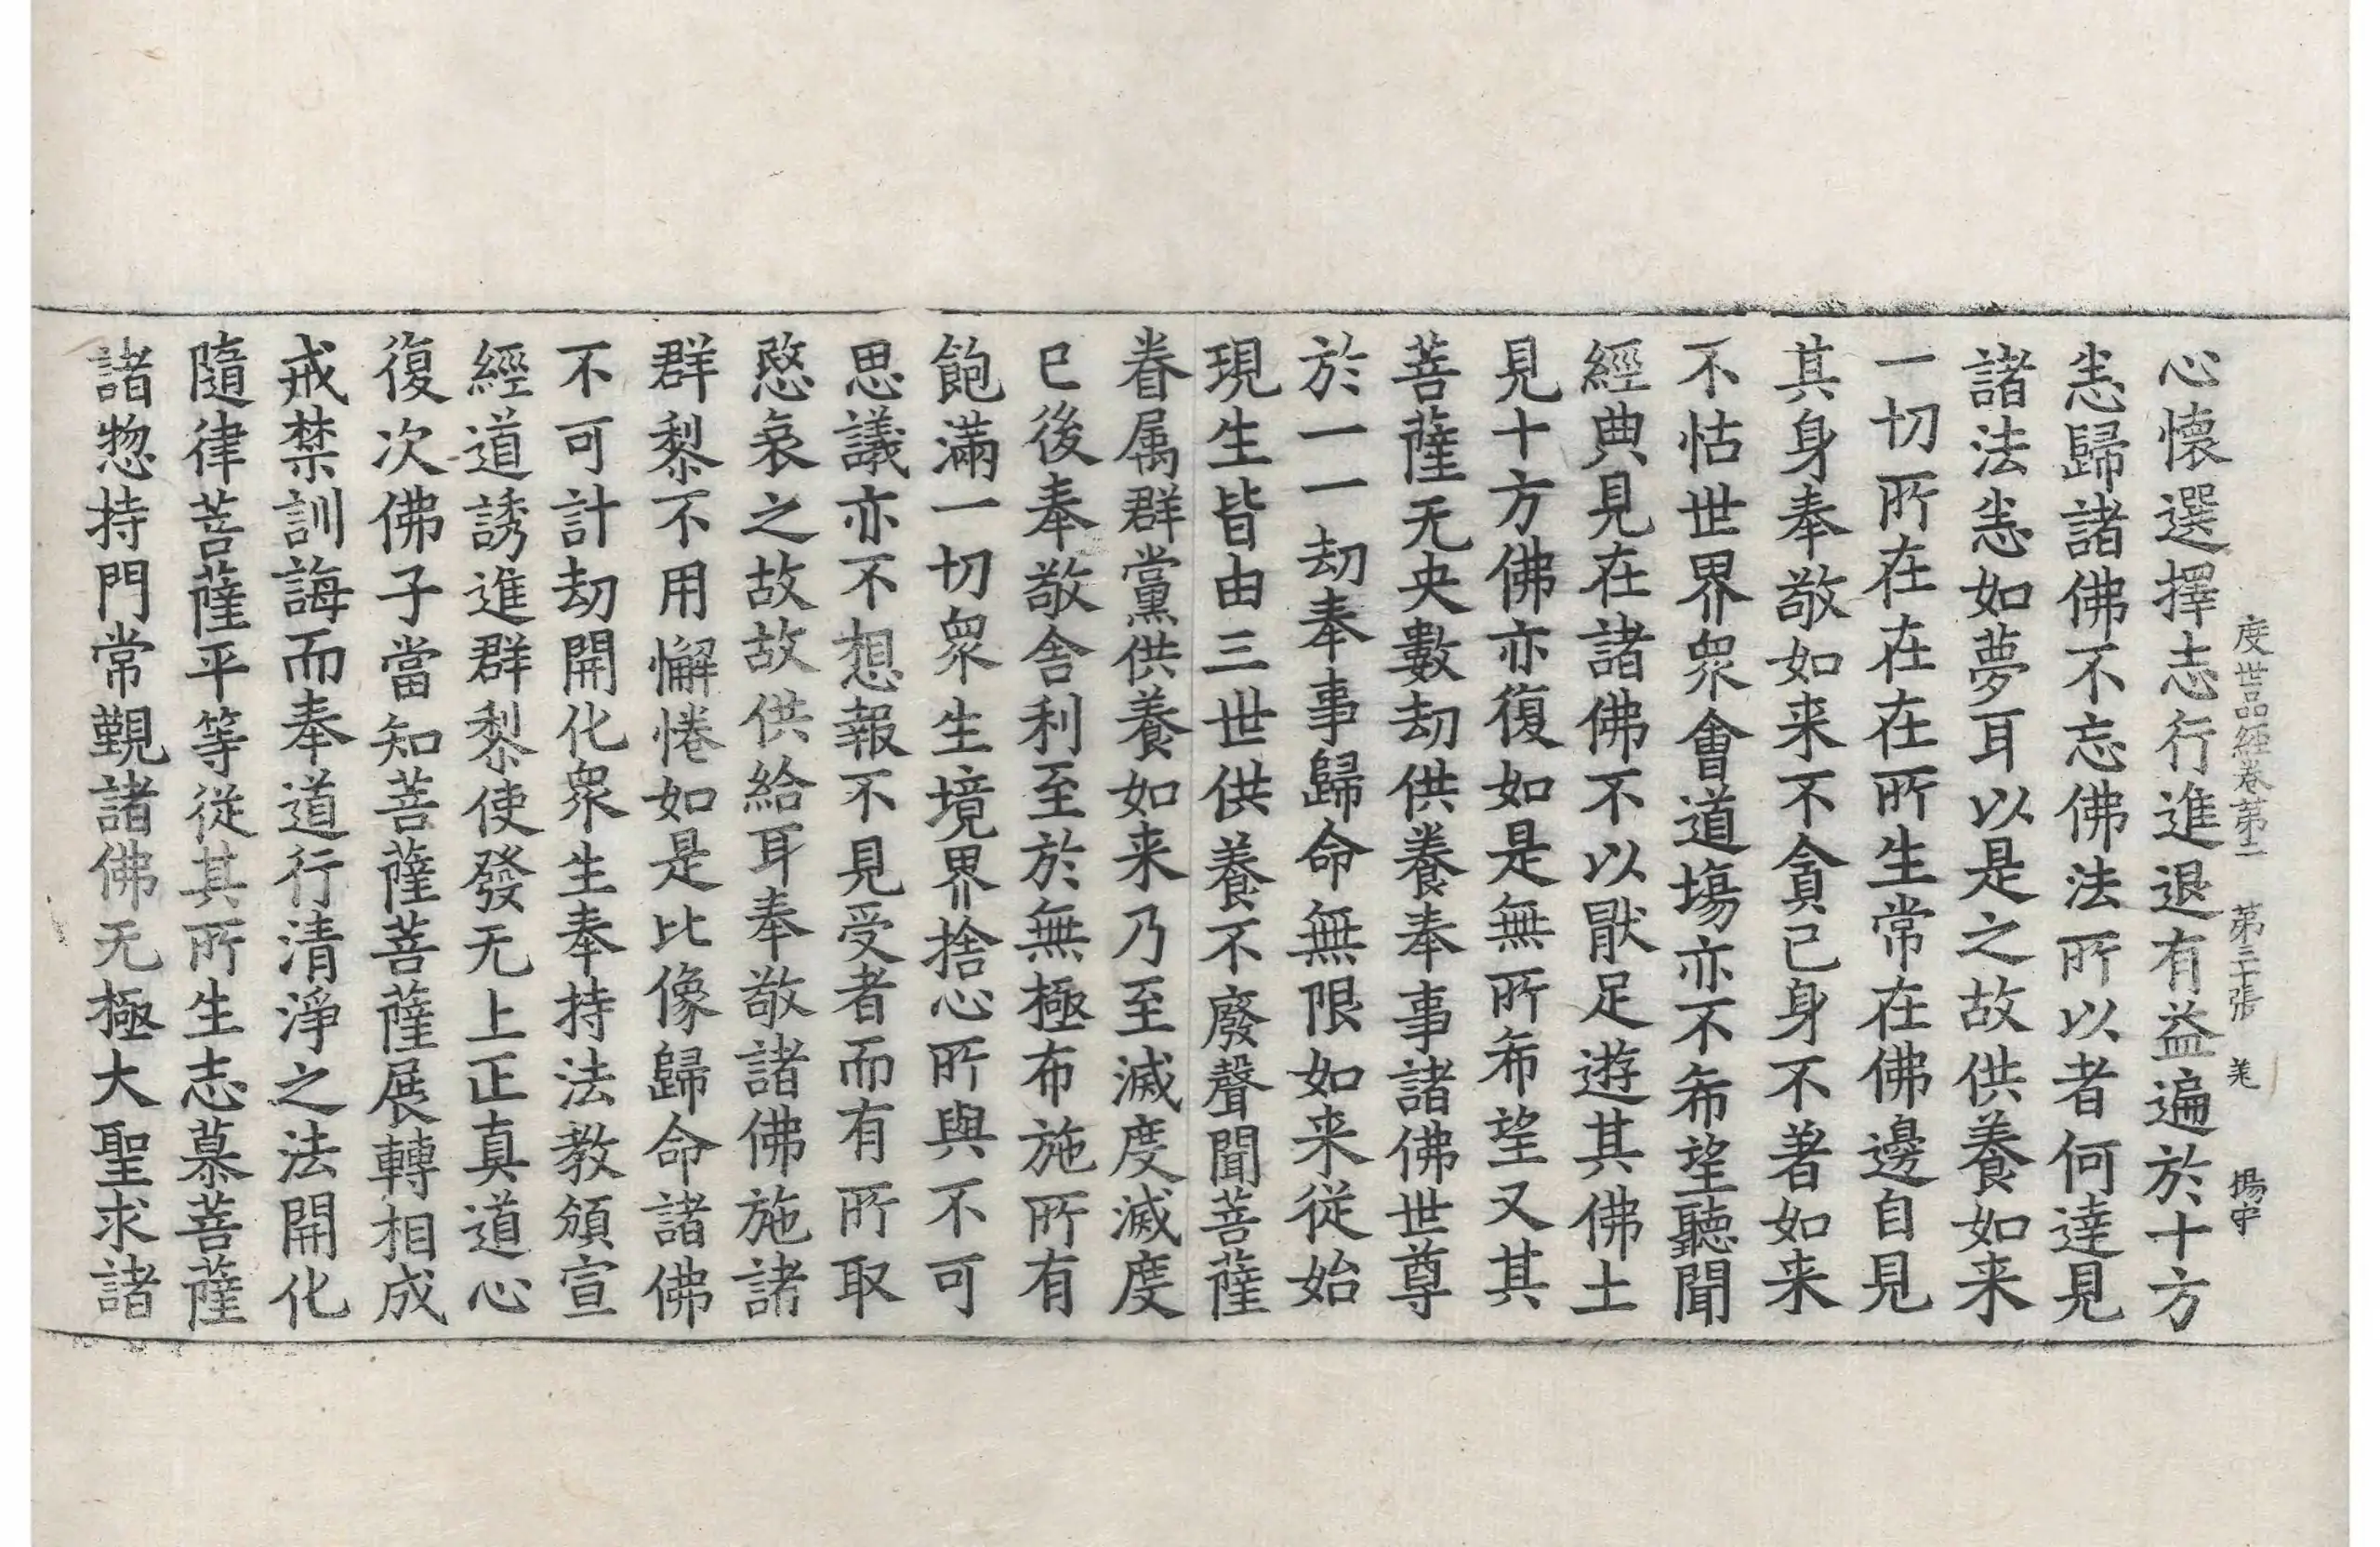 度世品經卷第二　第三十張　羌　楊中
心懷選擇志行進退有益遍於十方
恙歸諸佛不忘佛法所以者何達見
諸法恙如夢耳以是之故供養如来
一切所在在在所生常在佛邊自見
其身奉敬如来不貪己身不著如来
不怙世界眾會道塲亦不希望聽聞
經典見在諸佛不以猒足遊其佛土
見十方佛亦復如是無所希望又其
菩薩无央數劫供養奉事諸佛世尊
於一一劫奉事歸命無限如来從始
現生皆由三世供養不廢聲聞菩薩
眷属群黨供養如来乃至滅度滅度
已後奉敬舍利至於無極布施所有
飽滿一切眾生境界捨心所與不可
思議亦不想報不見受者而有所取
愍哀之故故供給耳奉敬諸佛施諸
群黎不用懈惓如是比像歸命諸佛
不可計劫開化眾生奉持法教頒宣
經道誘進群黎使發无上正真道心
復次佛子當知菩薩菩薩展轉相成
戒禁訓誨而奉道行清淨之法開化
隨律菩薩平等從其所生志慕菩薩
諸惣持門常觀諸佛无極大聖求諸